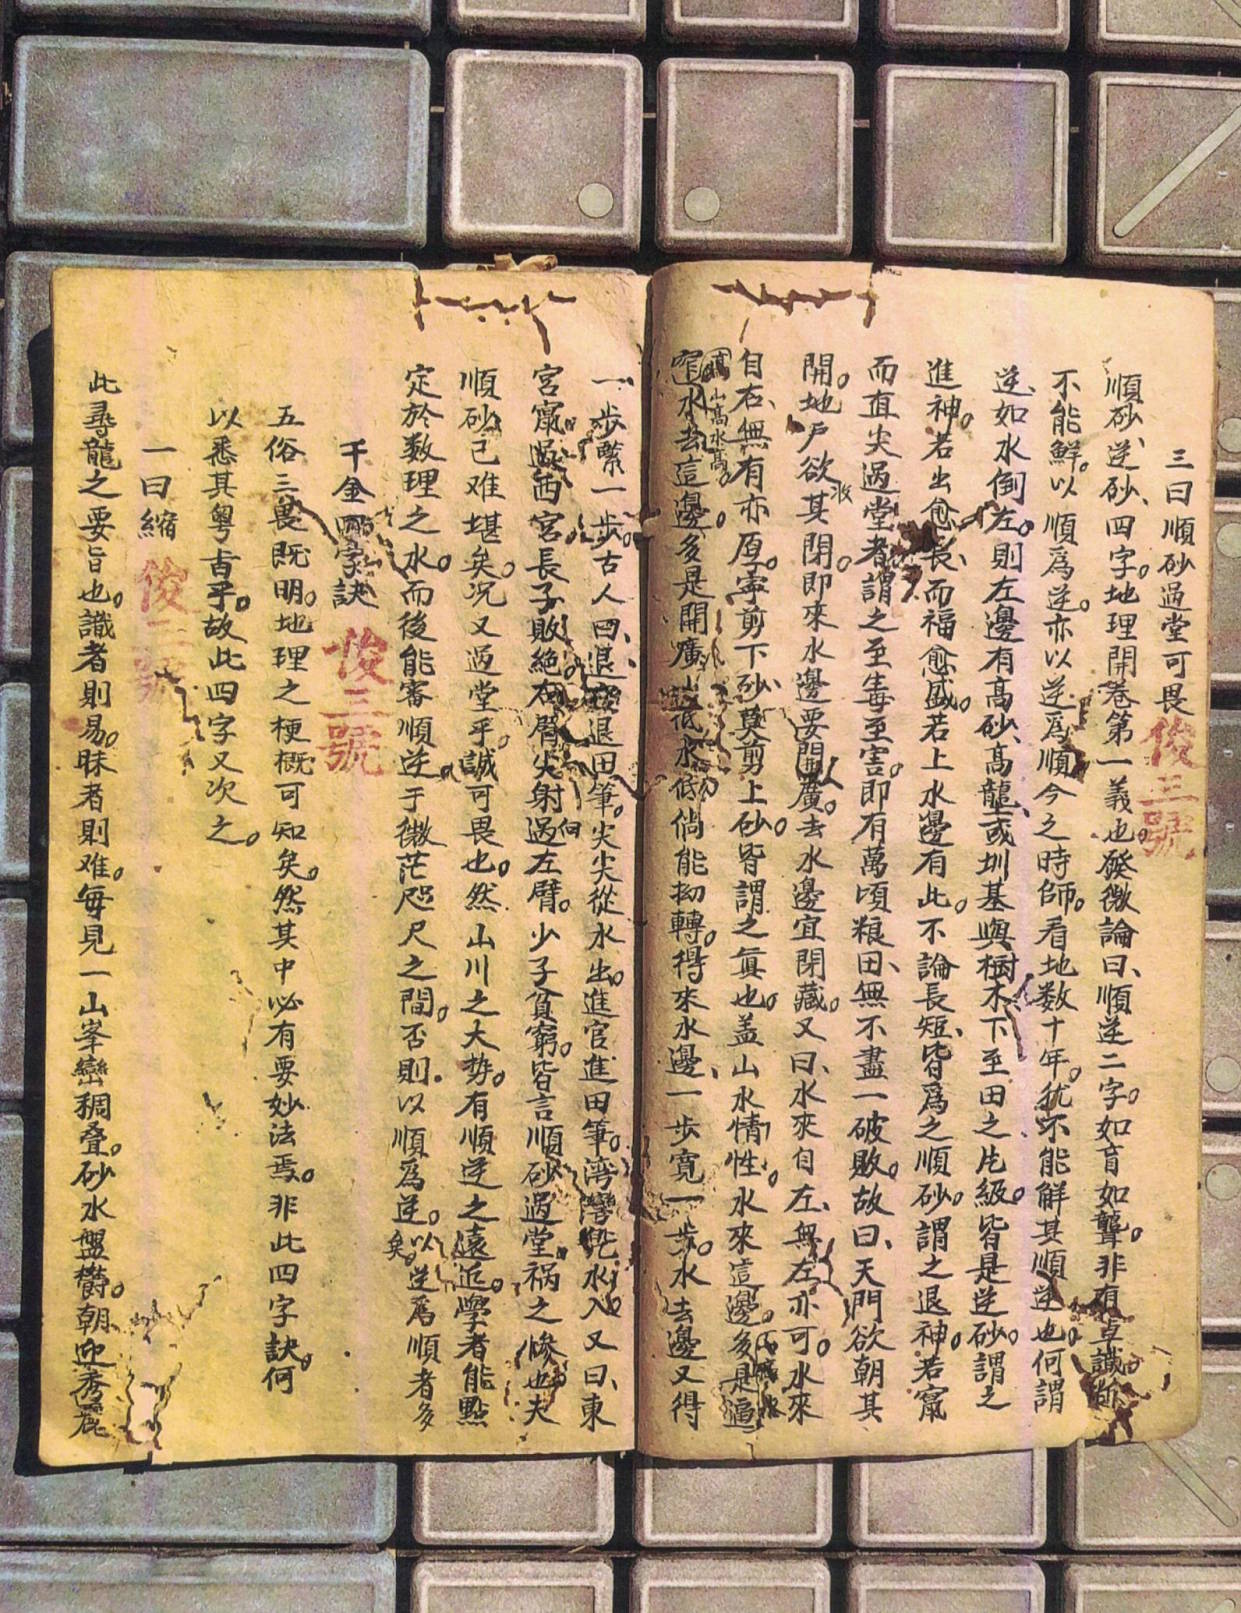 三曰順砂過堂可畏 俊三號
順砂、逆砂、四字。地理開卷第一義也。發微論曰、順逆二字。如盲如聾。非有卓識
不能鮮。以順爲逆。亦以逆爲順今之時師。看地数十年。犹不能解其順逆也。何謂
逆、如水倒左。則左邊有高砂、高龍、或圳基與樹木、下至田之片級。皆是逆砂。謂之
進神。若出愈長、而福愈盛。若上水邊有此。不論長短、皆爲之順砂。謂之退神。若竄
而直尖過堂者。謂之至毒至害。即有萬頃粮田、無不盡一破敗。故曰、天門欲朝其
開。地戶欲其閉。即來水邊要開廣。去水邊宜閉藏。又曰、水來自左、無左亦可。水來
自右、無有亦厚。寧剪下砂、莫剪上砂。皆謂之真也。盖山水情性。水來這邊。多是逼
山高水高。
窄。水去這邊。多是開廣。山低水低。倘能拗轉。得來水邊、一步寬一步。水去邊又得
一步緊一步。古人曰、退退田筆。尖尖從水出。進官進田筆。湾灣兠水入。又曰、東
宮竄過西宮。長子敗絕。右臂尖射過左臂。少子貧窮。皆言順砂過堂。禍之慘也。夫
順砂已难堪矣。况又過堂乎。誠可畏也。然山川之大势。有順逆之遠近。學者能點
定於数理之水。而後能審順逆于微茫咫尺之間。否則以順爲逆。以逆爲順者多
矣。
千金四字訣 俊三號
五俗三畏既明。地理之梗概可知矣。然其中必有要妙法焉。非此四字訣。何
以悉其粤旨乎。故此四字又次之。
一曰縮 俊三號
此尋龍之要旨也。識者則易。昧者則难。每見一山峯巒稠叠。砂水盤欝。朝迎秀麗